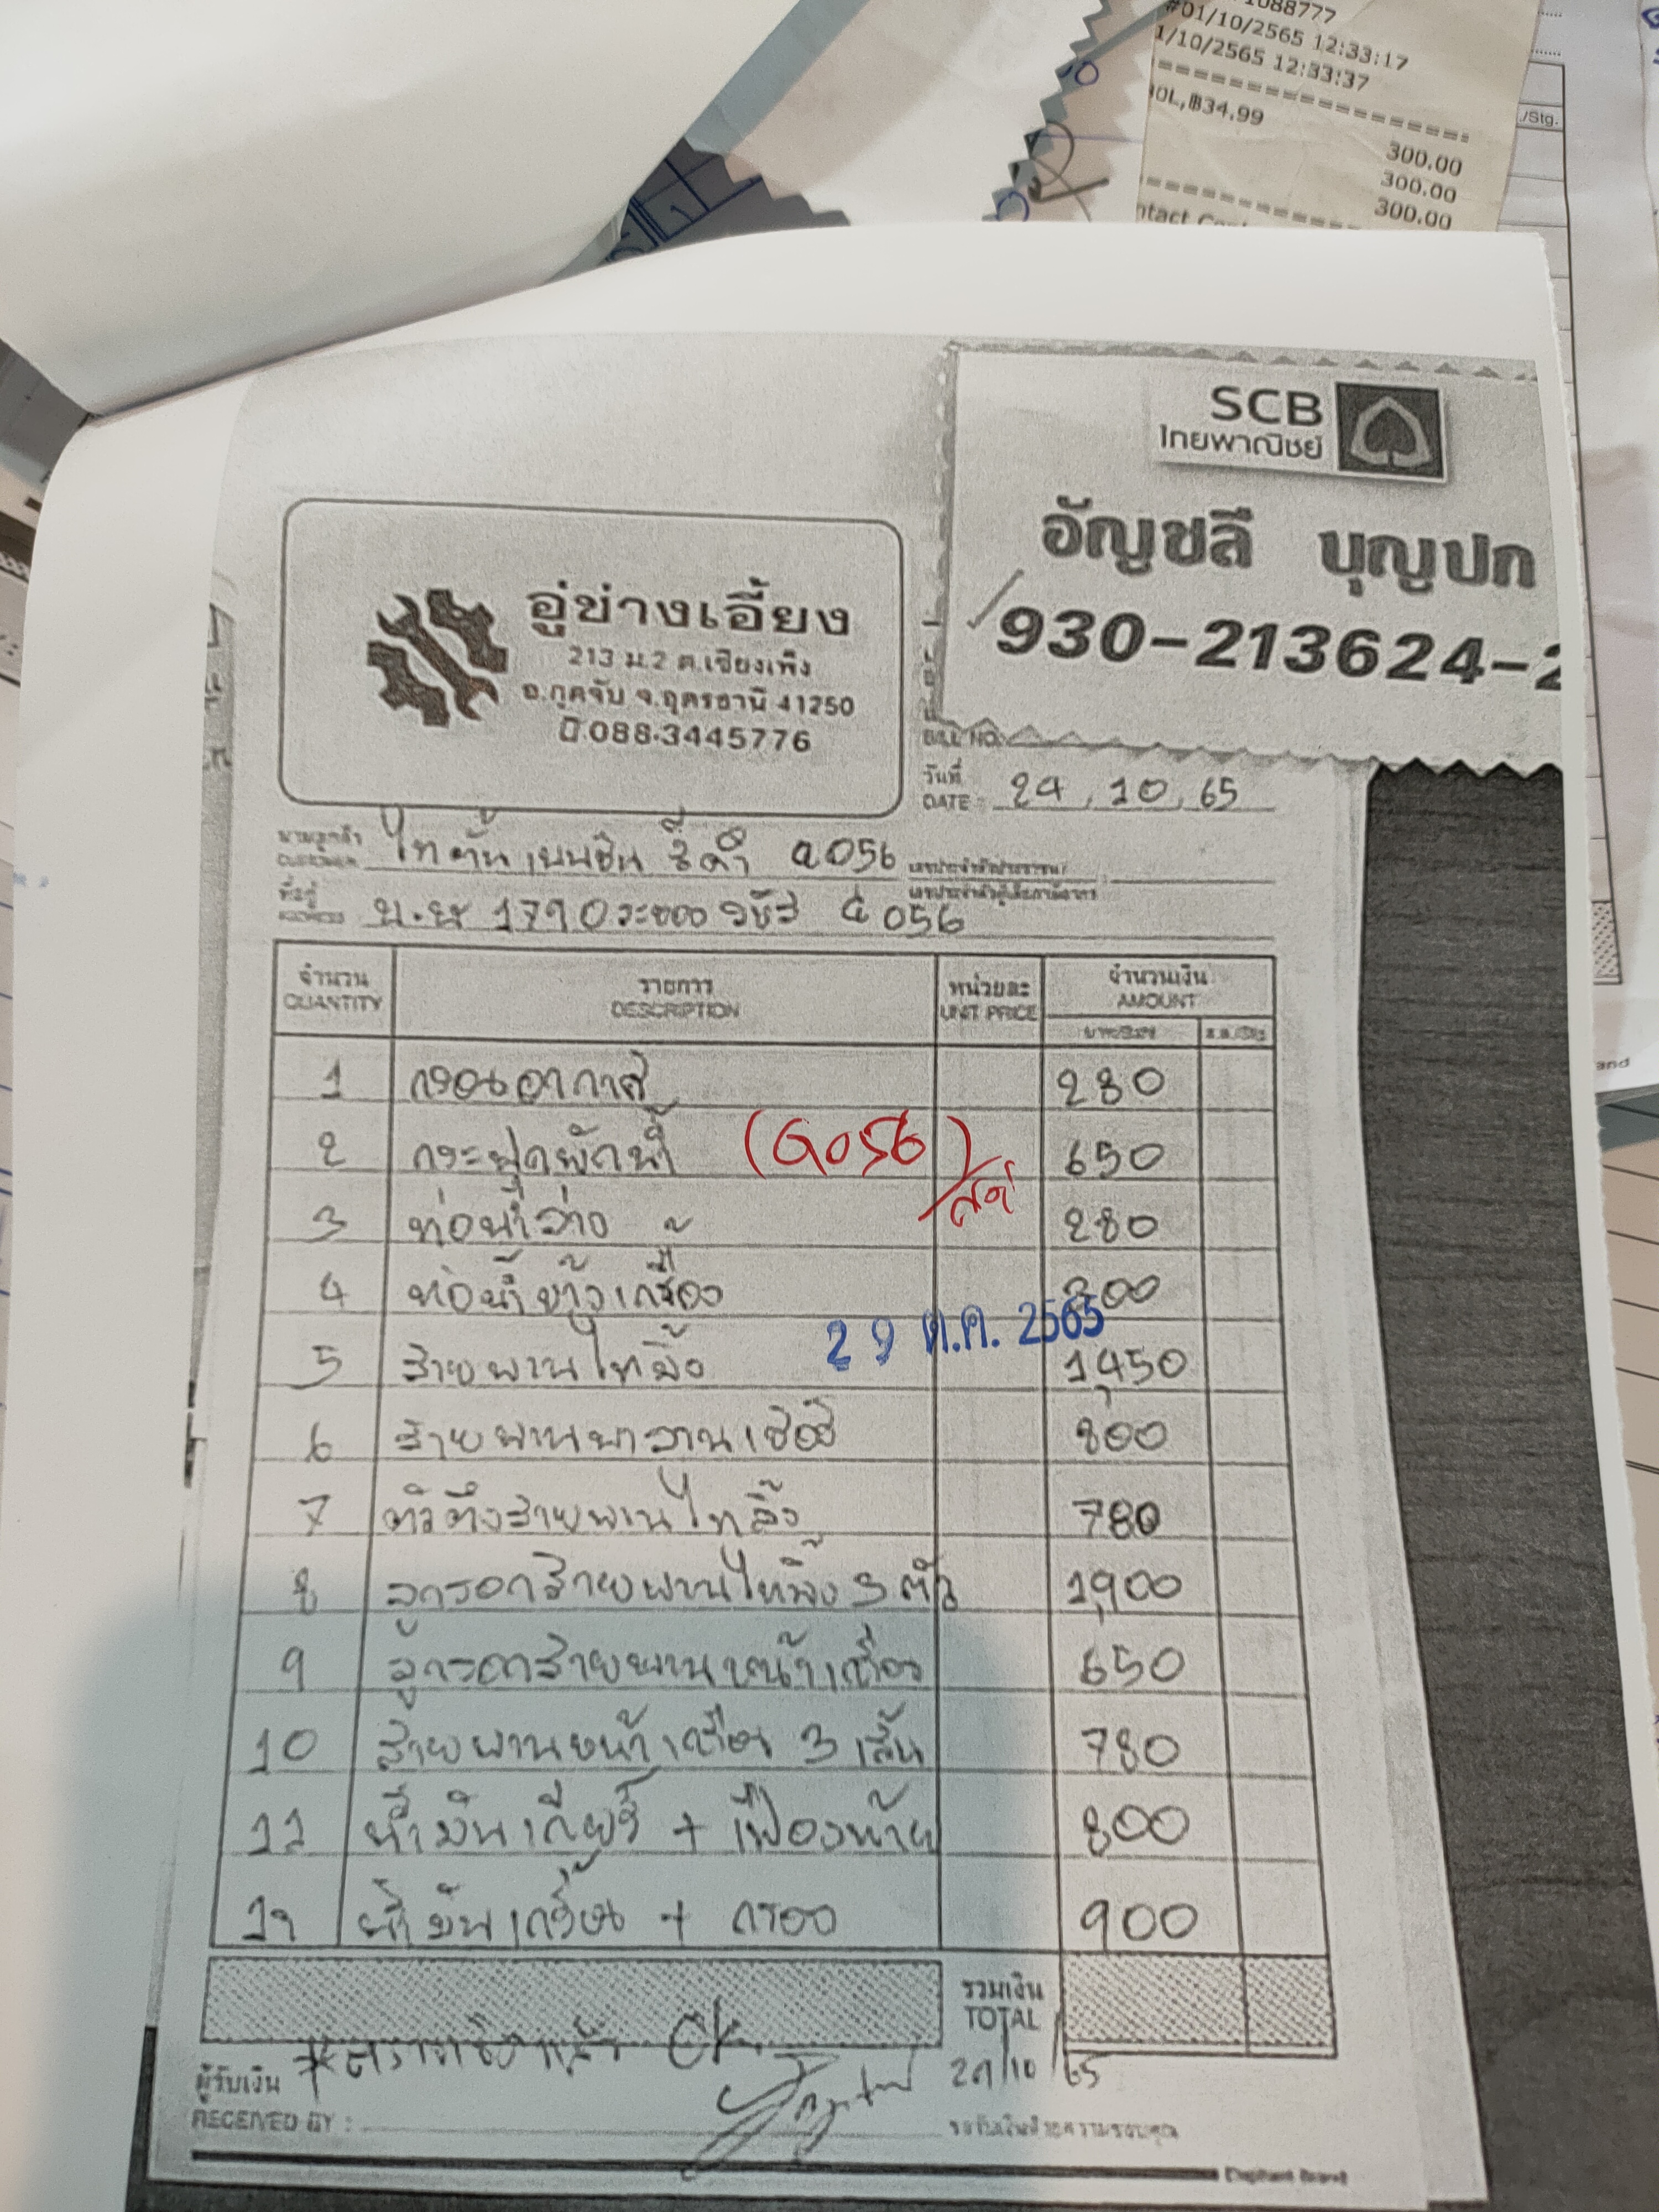 1088777
#01/10/2565 12:33:17
1/10/2565 12:33:37
0L,฿34.99
300.00
300.00
300.00
/Stg.
SCB
ไทยพาณิชย์
อัญชลี บุญปก
930-213624-2
อู่ช่างเอี้ยง
213 ม.2 ต.เชียงเพ็ง
อ.กุดจับ จ.อุดรธานี 41250
088-3445776
BILL NO.
วันที่
DATE : 24, 10, 65
นามลูกค้า
CUSTOMER ไทตัน เบนซิน สีดำ G056
ที่อยู่
ADDRESS บ.ษ 1790 ระยอง วิชัส G056
จำนวน รายการ หน่วยละ จำนวนเงิน
QUANTITY DESCRIPTION UNIT PRICE AMOUNT
1 กรองอากาศ 280
2 กระปุกพักน้ำ (G056) 650
3 ท่อน้ำล่าง 280
4 ท่อน้ำเข้าเครื่อง 300
29 ต.ค. 2565
5 สายพานไทมิ้ง 1,450
6 สายพานบาลานเซอร์ 800
7 ตัวตึงสายพานไทมิ้ง 780
8 ลูกรอกสายพานไทมิ้ง 3 ตัว 1,900
9 ลูกรอกสายพานหน้าเครื่อง 650
10 สายพานหน้าเครื่อง 3 เส้น 780
11 น้ำมันเกียร์ + เฟืองท้าย 800
12 น้ำมันเครื่อง + กรอง 900
รวมเงิน
TOTAL
*ตรวจเช็คแล้ว OK
29/10/65
ผู้รับเงิน
RECEIVED BY :
ขอบันเงินด้วยความขอบคุณ
Elephant Brand